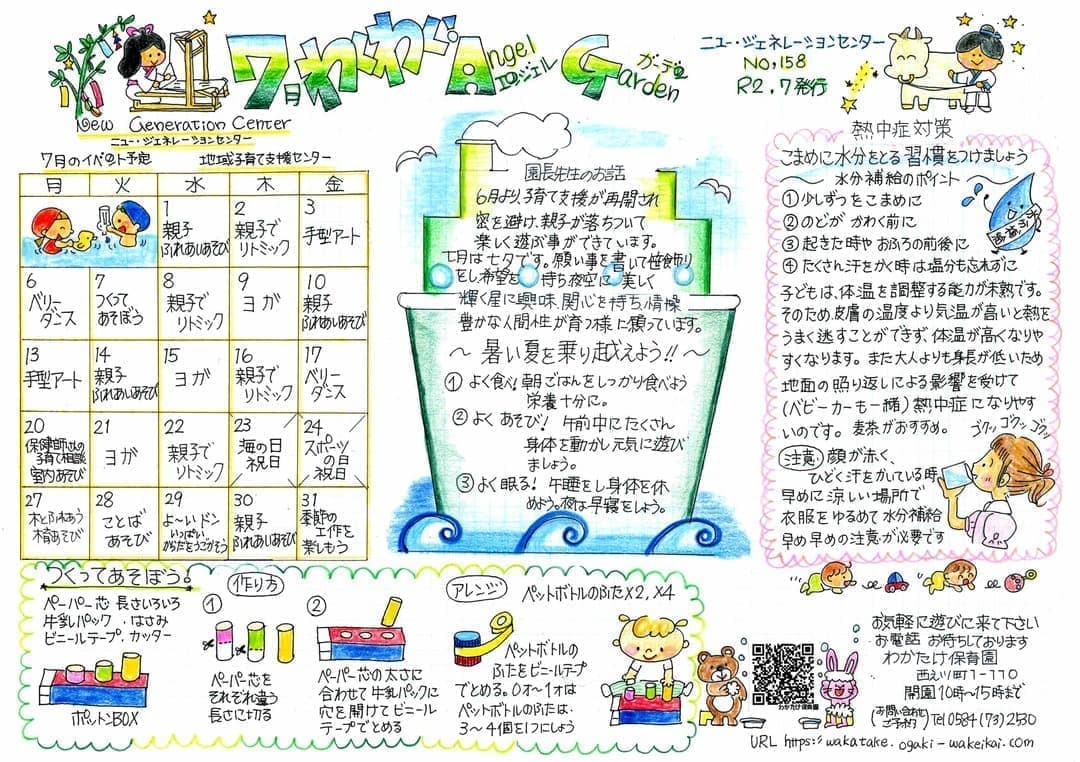 7月わくわく Angel Garden
エンジェル ガーデン
ニュー・ジェネレーションセンター
NO.158
R2.7発行
New Generation Center
ニュー・ジェネレーションセンター
7月のイベント予定 地域子育て支援センター
月 火 水 木 金
1 親子ふれあいあそび
2 親子でリトミック
3 手型アート
6 ベリーダンス
7 つくってあそぼう
8 親子でリトミック
9 ヨガ
10 親子ふれあいあそび
13 手型アート
14 親子ふれあいあそび
15 ヨガ
16 親子でリトミック
17 ベリーダンス
20 保健師さんの子育て相談室内あそび
21 ヨガ
22 親子でリトミック
23 海の日祝日
24 スポーツの日祝日
27 木とふれあう木育あそび
28 ことばあそび
29 よ～いドンいっぱいからだをうごかそう
30 親子ふれあいあそび
31 季節の工作を楽しもう
園長先生のお話
6月より、子育て支援が再開され
密を避け、親子が落ちついて
楽しく遊ぶ事ができています。
七月は七夕です。願い事を書いて笹飾り
をし希望を持ち夜空に美しく
輝く星に興味、関心を持ち、情操
豊かな人間性が育つ様に願っています。
～暑い夏を乗り越えよう!!～
① よく食べ! 朝ごはんをしっかり食べよう
栄養十分に。
② よくあそび! 午前中にたくさん
身体を動かし元気に遊び
ましょう。
③ よく眠る! 午睡をし身体を休
めよう。夜は早寝をしよう。
熱中症対策
こまめに水分をとる習慣をつけましょう
～水分補給のポイント～
① 少しずつをこまめに
② のどがかわく前に
③ 起きた時やおふろの前後に
④ たくさん汗をかく時は塩分も忘れずに
子どもは、体温を調整する能力が未熟です。
そのため、皮膚の温度より気温が高いと熱を
うまく逃すことができず、体温が高くなりや
すくなります。また大人よりも身長が低いため
地面の照り返しによる影響を受けて
(ベビーカーも一緒)熱中症になりやす
いのです。麦茶がおすすめ。
ゴクッ ゴクッ ゴクッ
注意 顔が赤く、
ひどく汗をかいている時、
早めに涼しい場所で
衣服をゆるめて水分補給
早め早めの注意が必要です
つくってあそぼう。
ペーパー芯 長さいろいろ
牛乳パック・はさみ
ビニールテープ、カッター
ポットンBOX
作り方
①
ペーパー芯を
それぞれ違う
長さに切る
②
ペーパー芯の太さに
合わせて牛乳パックに
穴を開けてビニール
テープでとめる
アレンジ ペットボトルのふた×2、×4
ペットボトルの
ふたをビニールテープ
でとめる。0才～1才は
ペットボトルのふたは、
3～4個を1つにしよう
わかたけ保育園
お気軽に遊びに来て下さい
お電話 お待ちしております
わかたけ保育園
西え川町1-110
開園10時～15時まで
(お問い合わせご予約) Tel 0584(73)2530
URL https://wakatake.ogaki-wakeikai.com